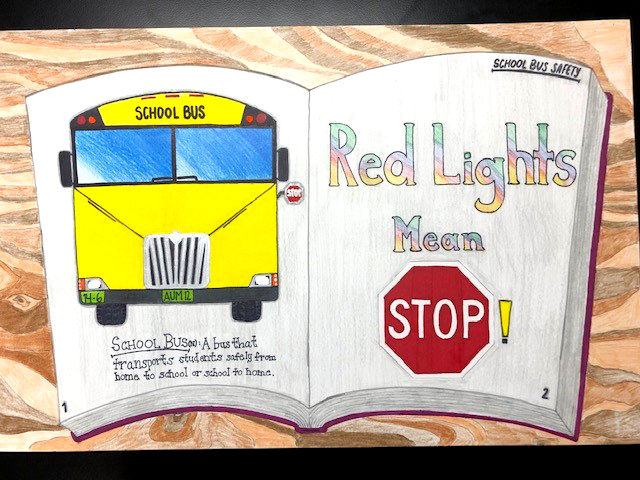 SCHOOL BUS
STOP
AUM 12
SCHOOL BUS(n): A bus that
transports students safely from
home to school or school to home.
1
SCHOOL BUS SAFETY
Red Lights
Mean
STOP!
2